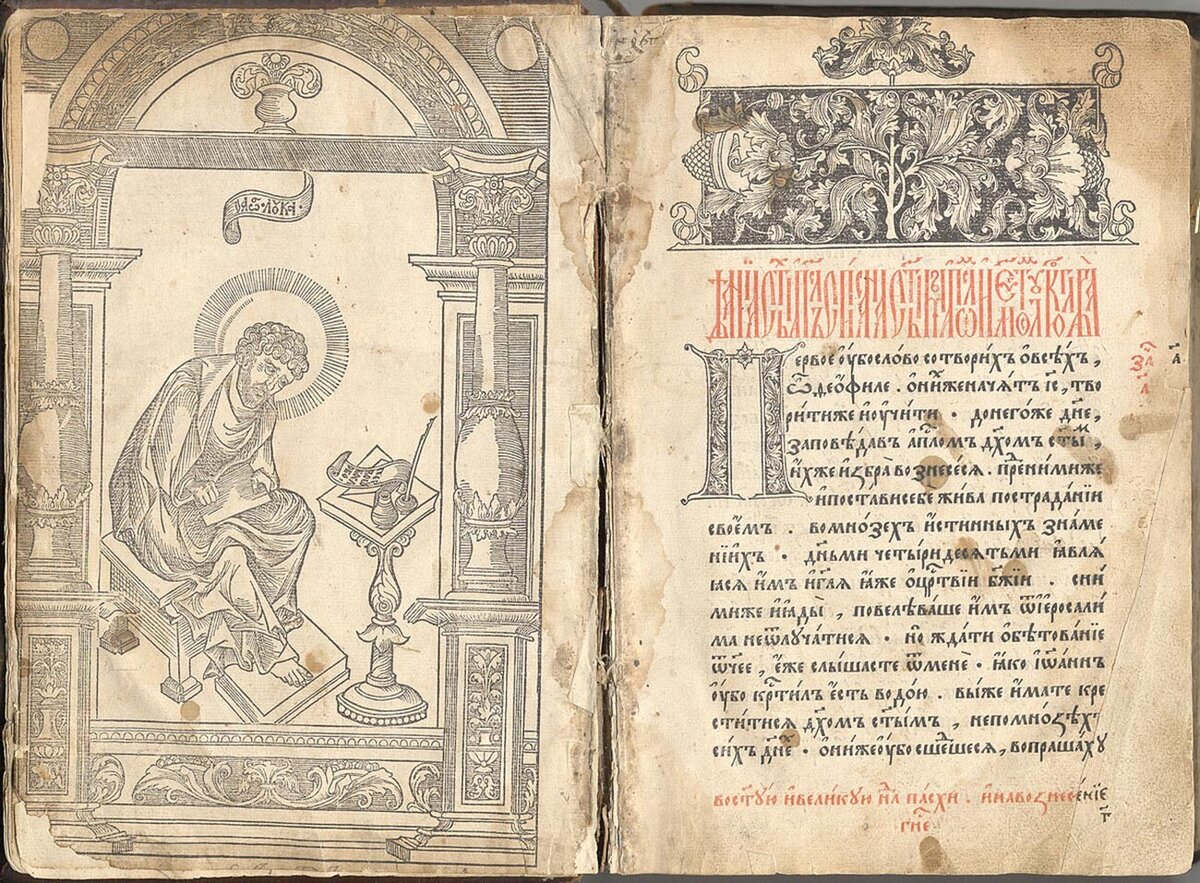 первое оубо слово сотворихъ ѡвсѣхъ,
ѽ ѳеѡфиле. ѡниже начатъ і҃с, тво
рити же и҆ оучити · донегоже дн҃е,
заповѣдавъ а҆пⷭ҇лоⷨ дх҃омъ ст҃ыⷨ,
и҆хже и҆збра вознесесѧ. преⷣ ними же
и҆ постави себе жива по страданїи
своемъ. во мноѕехъ и҆стинныхъ знаме
нїихъ · дн҃ьми четыридесѧтьми ꙗ҆влѧ
ꙗсѧ и҆мъ и҆ гл҃ѧ ꙗ҆же ѡ црⷭ҇твїи бж҃їи. сни
ми же и҆ ꙗ҆ды, повелѣваше и҆мъ ѿ і҆еросали
ма не ѿлучатисѧ · но ждати ѡбѣтованїе
ѿч҃ее, е҆же слышасте ѿ мене · ꙗ҆ко і҆ѡаннъ
оубо крⷭ҇тилъ е҆сть водою. вы же и҆мате кре
ститисѧ дх҃омъ ст҃ымъ, не по мноѕѣхъ
сихъ дн҃е · ѡни же оубо сшеⷣшесѧ, вопрашаху
во ст҃ую и҆ великую нⷧ҇ѧ пасхи. и҆ на вознесенїе
гн҃е